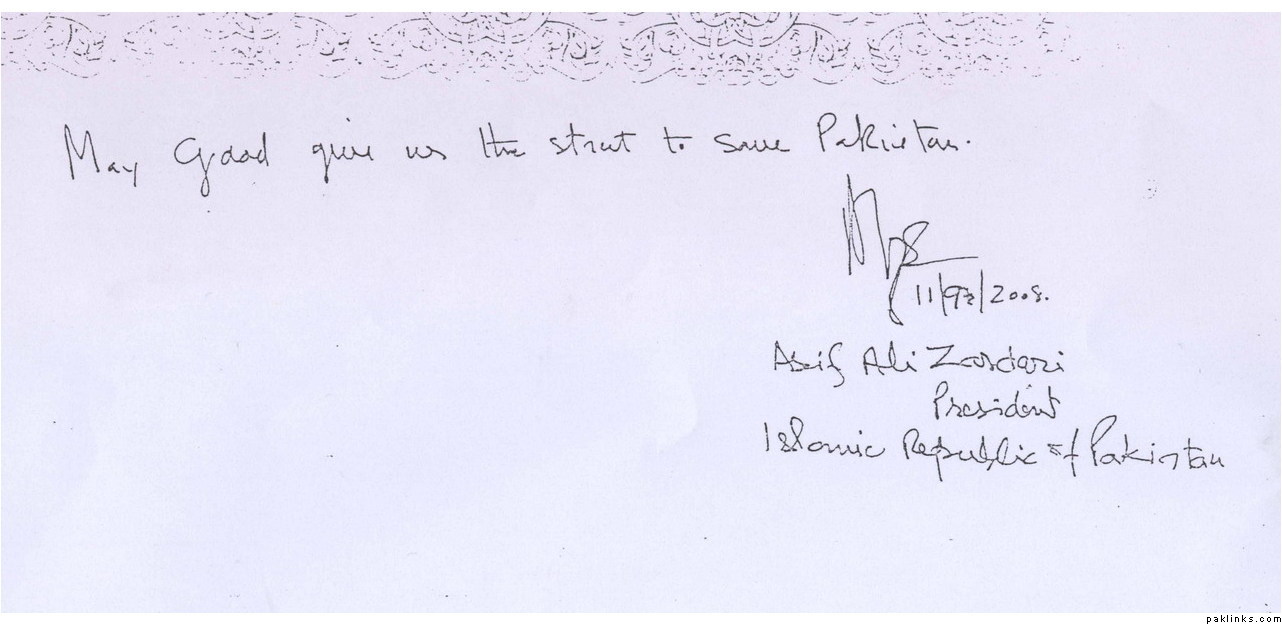 May Goad give us the strent to save Pakistan.
11/9/2008.
Asif Ali Zardari
President
Islamic Republic of Pakistan
paklinks.com